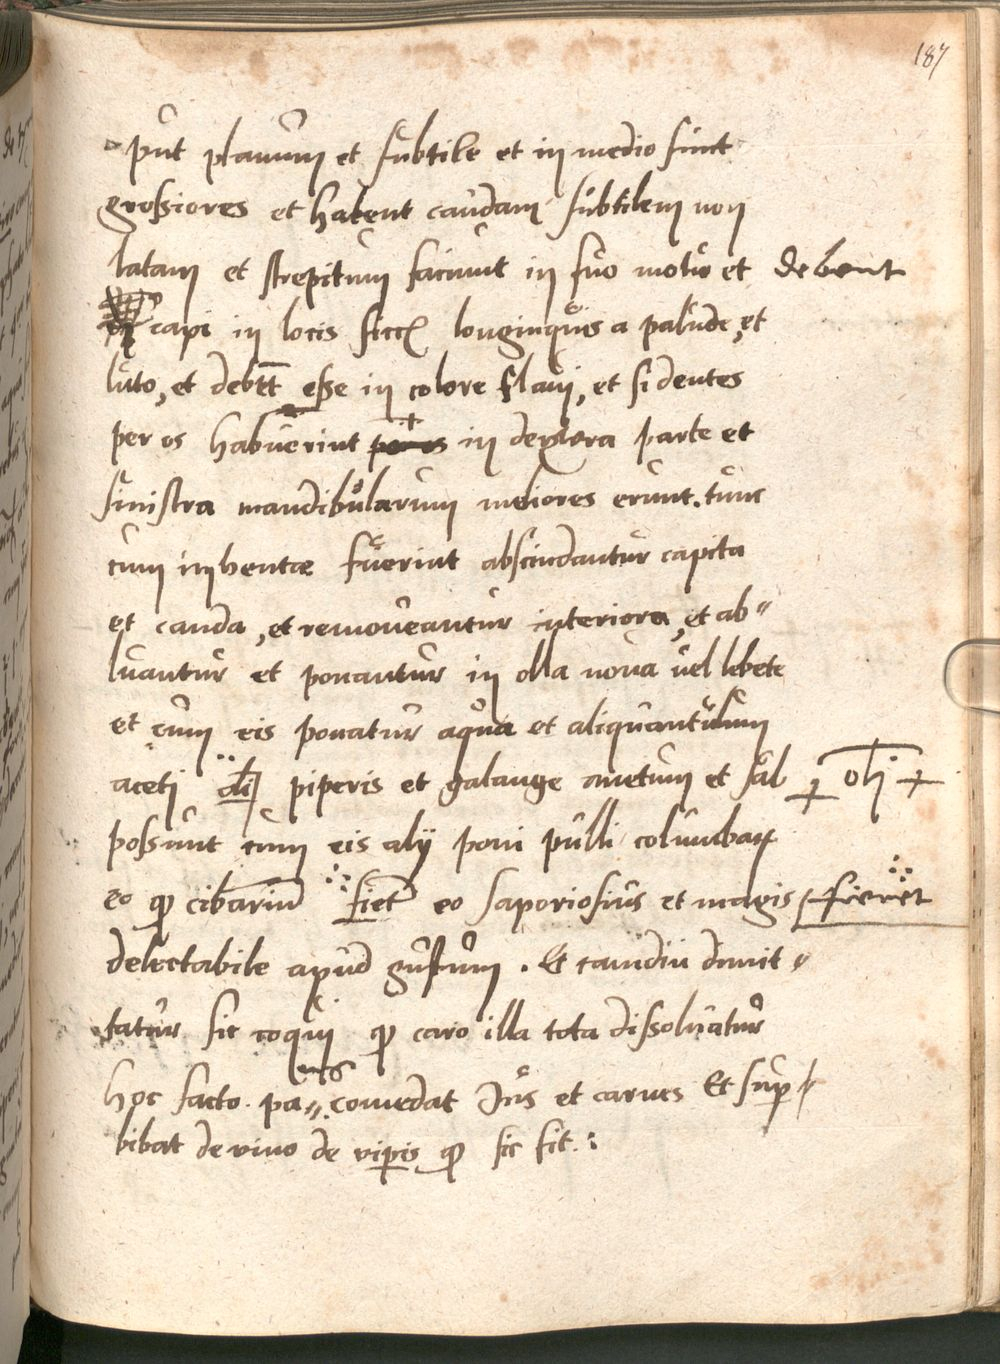 187
put planum et subtile et in medio sunt
grossiores et habent caudam subtilem non
latam et strepitum faciunt in suo motu et debent
capi in locis siccꝭ longinquis a palude, et
luto, et debēt esse in colore flavi, et si dentes
per os habuerint in dextera parte et
sinistra mandibularum meliores erunt. tunc
cum inventæ fuerint abscindantur capita
et cauda, et removeantur interiora, et ab〃
luantur et ponantur in olla nova vel lebete
et cum eis ponatur aqua et aliquantulum
aceti oli piperis et galange anetum et sal oli
possunt cum eis alij poni pulli columbaꝝ
eo ꝙ cibariū fiet eo saporiosius et magis fieret
delectabile apud gustum. Et tamdiu dimit〃
tatur sic coqui ꝙ caro illa tota dissolvatur
hoc facto. pa〃 ens comedat Jus et carnes Et sup
bibat de vino de viperis ꝙ sic fit.